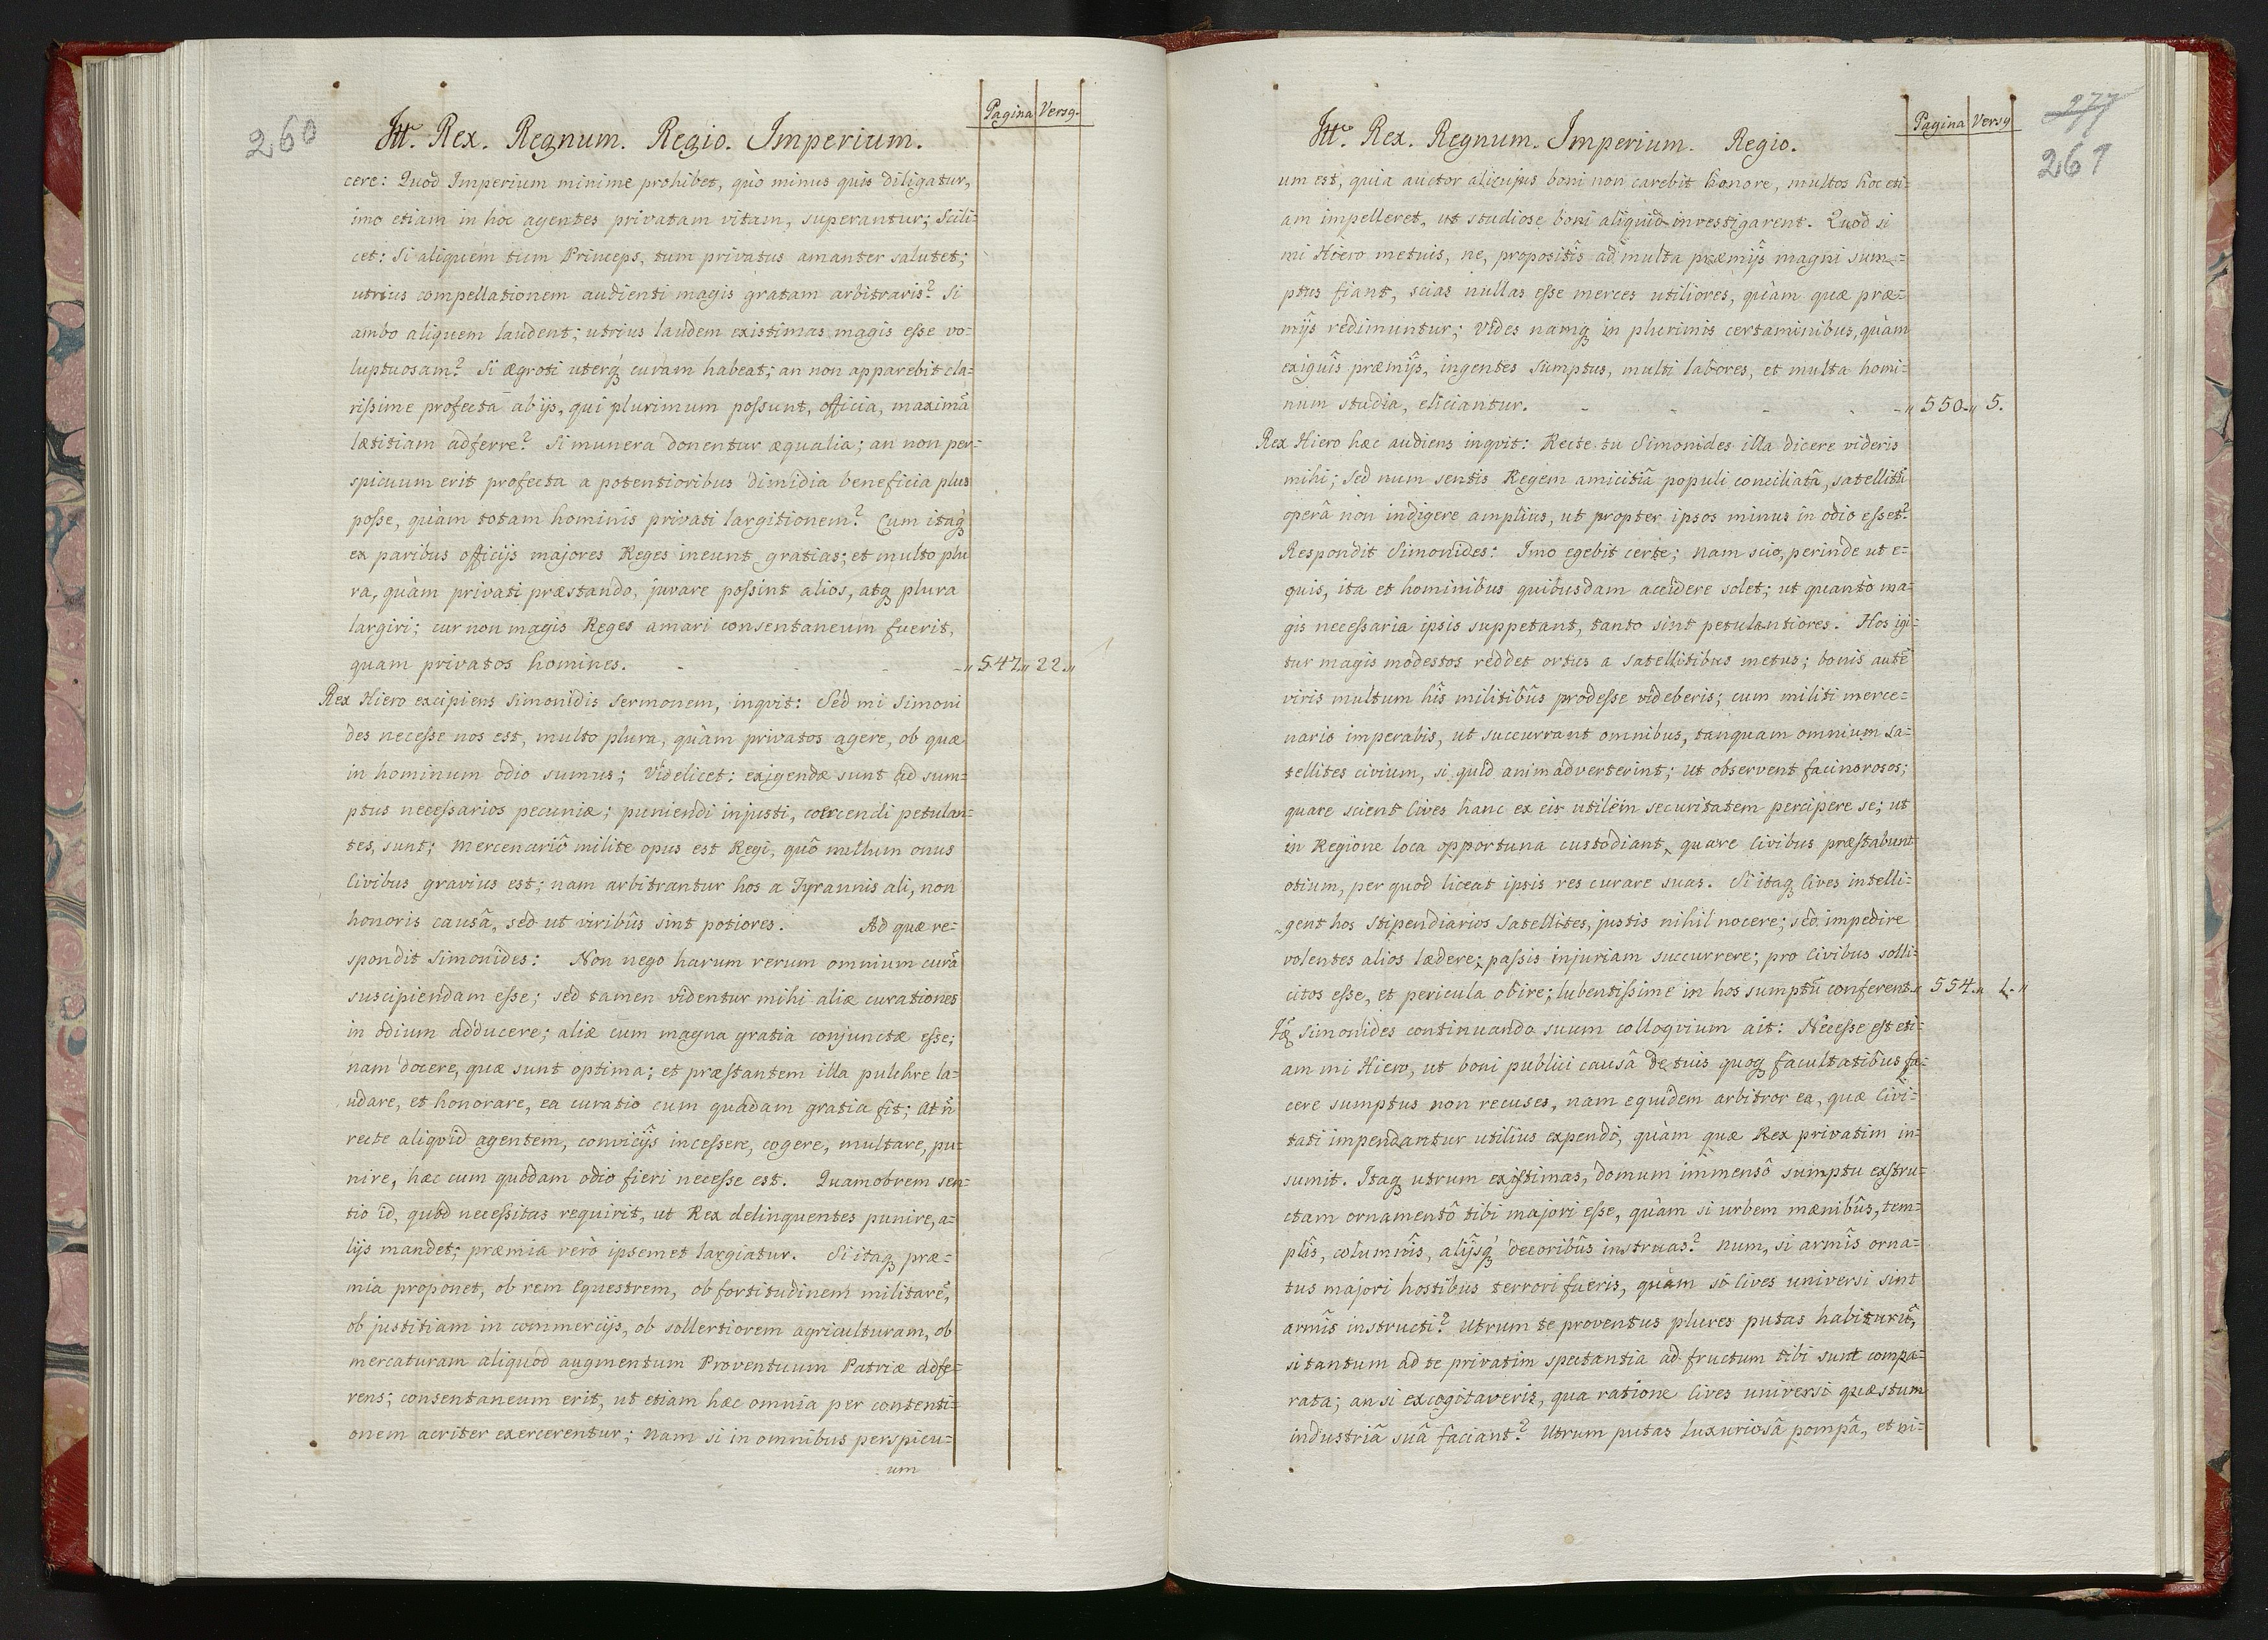 260
Pagina Versg.
Itt. Rex. Regnum. Regio. Imperium.
cere: Quod Imperium minime prohibet, quò minus quis diligatur,
imo etiam in hoc agentes privatam vitam, superantur; Scili=
cet: Si aliquem tum Princeps, tum privatus amanter salutet;
utrius compellationem audienti magis gratam arbitraris? Si
ambo aliquem laudent; utrius laudem existimas magis esse vo=
luptuosam? Si ægroti uterq́ curam habeat; an non apparebit cla=
rissime profecta ab ijs, qui plurimum possunt, officia, maximã
lætitiam adferre? Si munera donentur æqualia; an non per=
spicuum erit profecta a potentioribus dimidia beneficia plus
posse, quàm totam hominis privati largitionem? Cum itaq́
ex paribus officijs majores Reges ineunt gratias; et multo plu
ra, quàm privati præstando, juvare possint alios, atq plura
largiri; cur non magis Reges amari consentaneum fuerit,
quam privatos homines. - - - -„ 547„ 22„
Rex Hiero excipiens Simonidis Sermonem, inqvit: Sed mi Simoni
des necesse nos est, multo plura, quàm privatos agere, ob quæ
in hominum odio sumus; Videlicet: exigendæ sunt ad sum=
ptus necessarios pecuniæ; puniendi injusti, coercendi petulan=
tes, sunt; Mercenariô milite opus est Regi, quô nullum onus
Civibus gravius est; nam arbitrantur hos a Tyrannis ali, non
honoris causâ, sed ut viribûs sint potiores. Ad quæ re=
spondit Simonides: Non nego harum rerum omnium curã
suscipiendam esse; sed tamen videntur mihi aliæ curationes
in odium adducere; aliæ cum magna gratia conjunctæ esse;
nam docere, quæ sunt optima; et præstantem illa pulchre la=
udare, et honorare, ea curatio cum quadam gratia fit; at ñ
recte aliqvid agentem, convicijs incessere, cogere, multare, pu=
nire, hæc cum quodam odio fieri necesse est. Quamobrem sen=
tio id, quod necessitas requirit, ut Rex delinquentes punire, a=
lijs mandet; præmia verò ipsemet largiatur. Si itaq præ=
mia proponet, ob rem Equestrem, ob fortitudinem militarẽ,
ob justitiam in commercijs, ob sollertiorem agriculturam, ob
mercaturam aliquod augmentum Proventuum Patriæ adfe=
rens; consentaneum erit, ut etiam hæc omnia per contenti=
onem acriter exercerentur; Nam si in omnibus perspicu=
um
277
261
Pagina Versg
Itt. Rex. Regnum. Imperium. Regio.
um est, quia auctor alicujus boni non carebit honore, multos hoc eti=
am impelleret, ut studiose boni aliquid investigarent. Quod si
mi Hiero metuis, ne, propositîs ad multa præmijs magni sum=
ptus fiant, scias nullas esse merces utiliores, quàm quæ præ=
mijs redimuntur; Vides namq in plurimis certaminibus, quàm
exiguîs præmijs, ingentes Sumptus, multi labores, et multa homi=
num studia, eliciantur. - - - - -„ 550„ 5.
Rex Hiero hæc audiens inqvit: Recte tu Simonides illa dicere videris
mihi; Sed num sentis Regem amicitiâ populi conciliatâ, satellitũ
operâ non indigere amplius, ut propter ipsos minus in odio esset?
Respondit Simonides: Imo egebit certe; nam scio, perinde ut e=
quis, ita et hominibus quibusdam accidere solet; ut quantò ma=
gis necessaria ipsis suppetant, tanto sint petulantiores. Hos igi=
tur magis modestos reddet ortus a Satellitibus metus; bonis autẽ
viris multum hîs militibûs prodesse videberis; cum militi merce=
nario imperabis, ut succurrant omnibus, tanquam omnium Sa=
tellites civium, si quid animadverterint; ut observent facinorosos;
quare scient Cives hanc ex eis utilem securitatem percipere se; ut
in Regione loca opportuna custodiant, quare Civibus præstabunt
otium, per quod liceat ipsis res curare suas. Si itaq Cives intelli=
gent hos Stipendiarios Satellites, justis nihil nocere; sed impedire
volentes alios lædere; passis injuriam succurrere; pro Civibus solli=
citos esse, et pericula obire; lubentissime in hos sumptũ conferent„ 554„ 1„
Itẽ Simonides continuando suum colloqvium ait: Necesse est eti=
am mi Hiero, ut boni publici causâ de tuis quoq facultatibûs fa=
cere sumptus non recuses, nam equidem arbitror ea, quæ Civi=
tati impendantur utilius expendi, quàm quæ Rex privatim in=
sumit. Itaq utrum existimas, domum immensô sumptu exstru=
ctam ornamentô tibi majori esse, quàm si urbem mænibûs, tem=
plîs, columnîs, alijsq́ decoribûs instruas? Num, si armîs orna=
tus majori hostibus terrori fueris, quàm si Cives universi sint
armîs instructi? Utrum te proventus plures putas habiturũ,
si tantum ad te privatim spectantia ad fructum tibi sunt compa=
rata; an si excogitaveris, qua ratione Cives universi quæstum
industriâ suâ faciant? Utrum putas luxuriosâ pompâ, et ni=